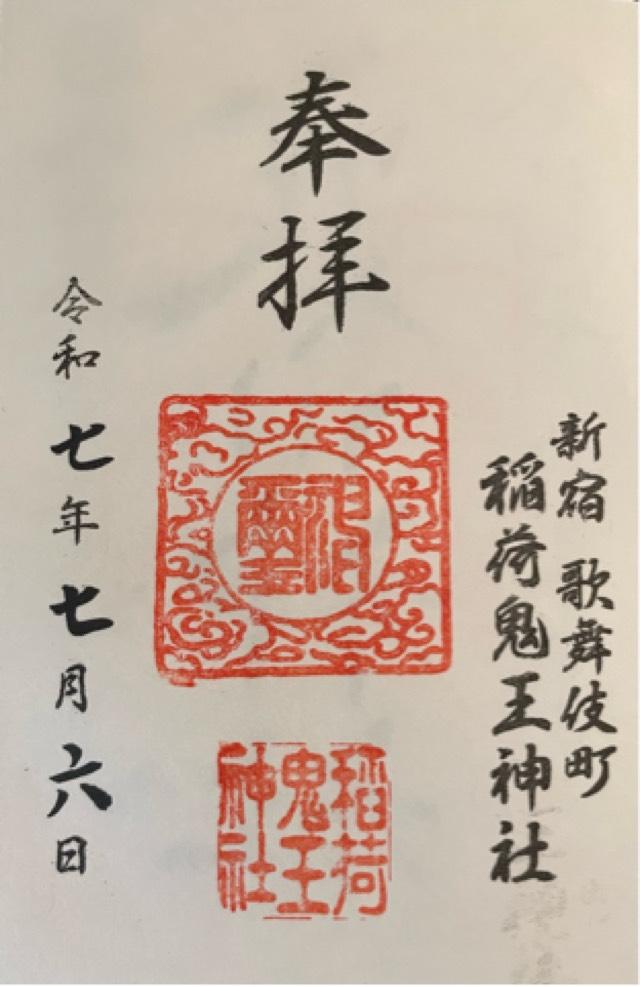 新宿 歌舞伎町
稲荷鬼王神社
奉拝
稲荷
鬼王
神社
令和七年七月六日